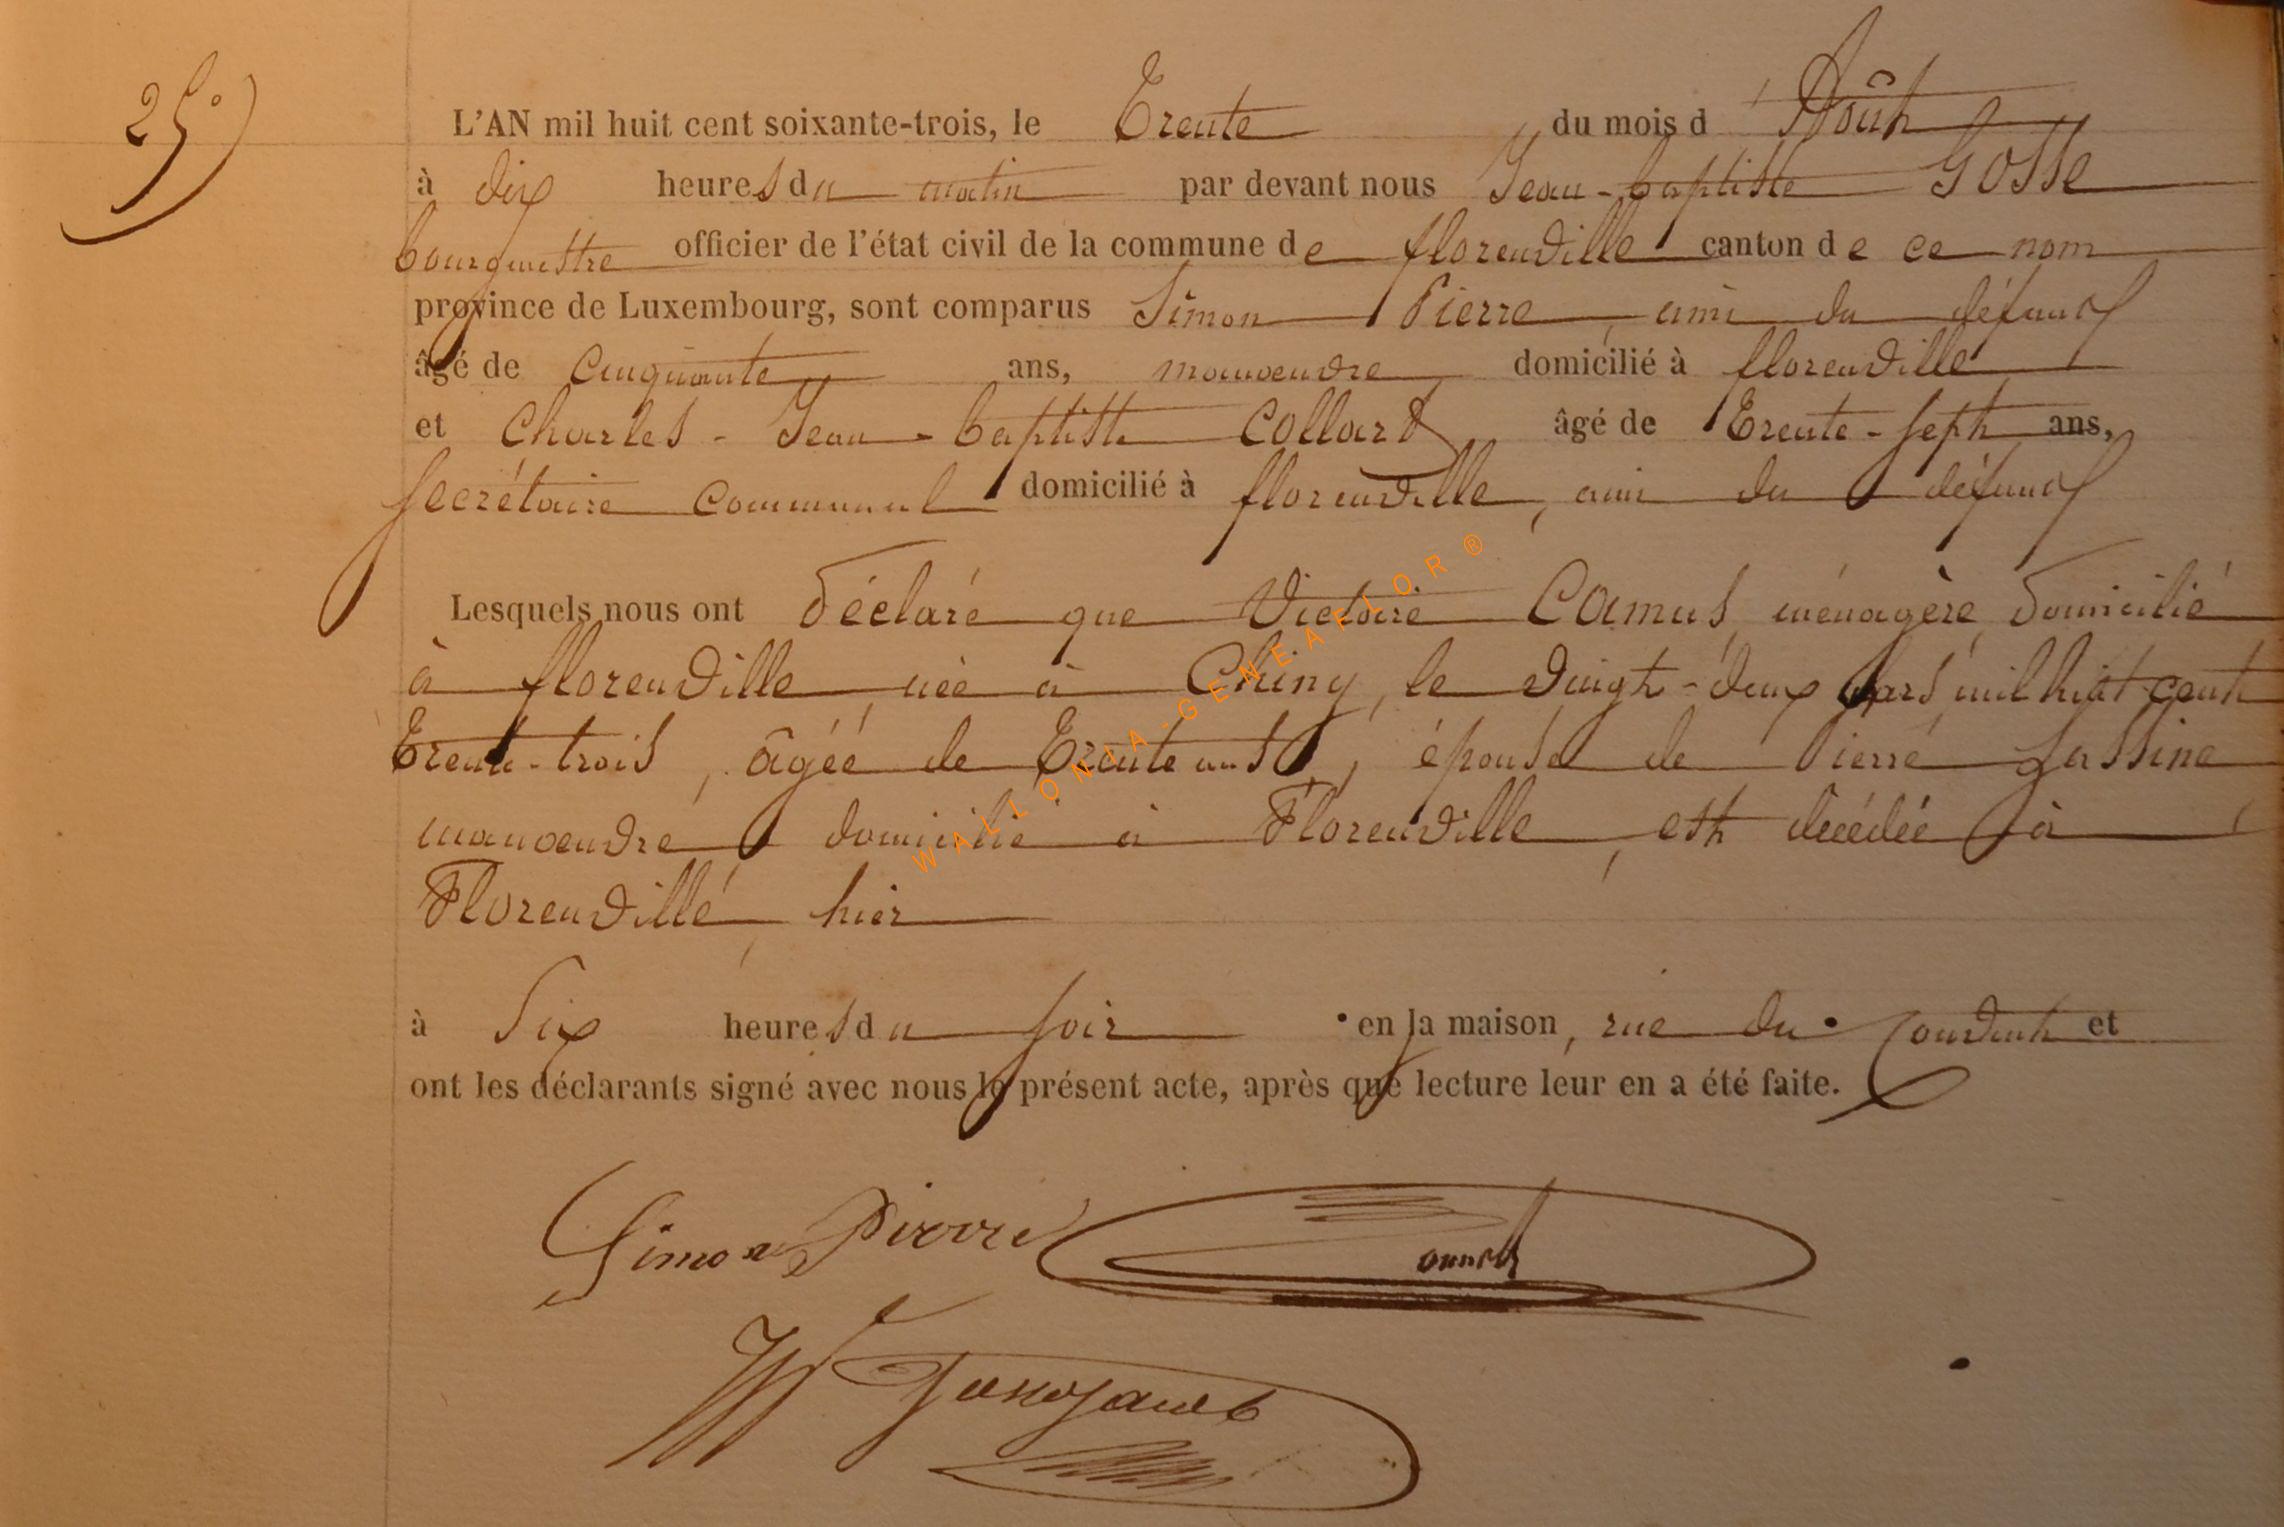 25°)
L'AN mil huit cent soixante-trois, le Trente du mois d'Août
à dix heures du matin par devant nous Jean-baptiste Gosse
bourgmestre officier de l'état civil de la commune de florenville canton de ce nom
province de Luxembourg, sont comparus Simon Pierre, ami du défunt
âgé de Cinquante ans, manoeuvre domicilié à florenville
et Charles-Jean-baptiste Collard âgé de Trente-sept ans,
secrétaire communal domicilié à florenville, ami du défunt
Lesquels nous ont déclaré que Victoire Camus, ménagère, domicilié
à florenville, née à Chiny, le vingt-deux Mars mil huit cent
Trente-trois, âgée de Trente ans, épouse de Pierre Lassine
manoeuvre domicilié à Florenville, est décédée à
Florenville, hier
à Six heures du soir en sa maison, rue du et
ont les déclarants signé avec nous le présent acte, après que lecture leur en a été faite.
Simon Pierre
WALLONIA-GENEAFLOR®